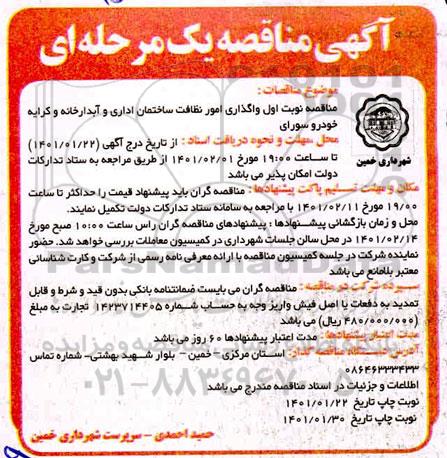 آگهی مناقصه یک مرحله‌ای
موضوع مناقصات :
مناقصه نوبت اول واگذاری امور نظافت ساختمان اداری و آبدارخانه و کرایه
خودرو سورای
محل ،مهلت و نحوه دریافت اسناد : از تاریخ درج آگهی (۱۴۰۱/۰۱/۲۲)
تا ساعت ۱۹:۰۰ مورخ ۱۴۰۱/۰۲/۰۱ از طریق مراجعه به ستاد تدارکات
دولت امکان پذیر می باشد
شهرداری خمین
مکان و مهلت تسلیم پاکت پیشنهادها : مناقصه گران باید پیشنهاد قیمت را حداکثر تا ساعت
۱۹/۰۰ مورخ ۱۴۰۱/۰۲/۱۱ با مراجعه به سامانه ستاد تدارکات دولت تکمیل نمایند.
محل و زمان بازگشائی پیشنهادها : پیشنهادهای مناقصه گران راس ساعت ۱۰:۰۰ صبح مورخ
۱۴۰۱/۰۲/۱۴ در محل سالن جلسات شهرداری در کمیسیون معاملات بررسی خواهد شد. حضور
نماینده شرکت در جلسه کمیسیون مناقصه با ارائه معرفی نامه رسمی از شرکت و کارت شناسائی
معتبر بلامانع می باشد
سپرده شرکت در مناقصه : مناقصه گران می بایست ضمانتنامه بانکی بدون قید و شرط و قابل
تمدید به دفعات یا اصل فیش واریز وجه به حساب شماره ۱۴۲۳۷۱۴۴۰۵ تجارت به مبلغ
(۴۸۰/۰۰۰/۰۰۰ ریال) می باشد
مدت اعتبار پیشنهادها : مدت اعتبار پیشنهادها ۶۰ روز می باشد
آدرس دستگاه مناقصه گذار: استان مرکزی – خمین – بلوار شهید بهشتی– شماره تماس
۰۸۶۴۶۳۳۳۴۳۳
اطلاعات و جزئیات در اسناد مناقصه مندرج می باشد
نوبت چاپ تاریخ ۱۴۰۱/۰۱/۲۲
نوبت چاپ تاریخ ۱۴۰۱/۰۱/۳۰
حمید احمدی – سرپرست شهرداری خمین
۰۲۱-۸۸۳۴۹۶۷۰